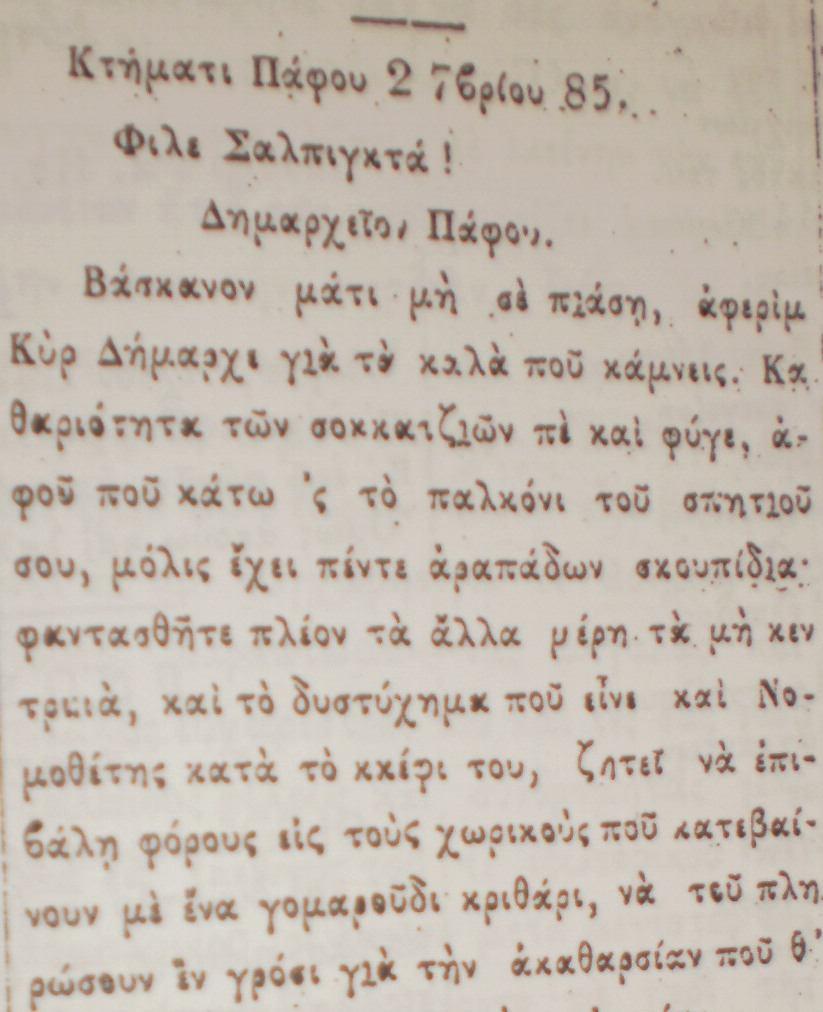 Κτήματι Πάφου 2 7βρίου 85.
Φιλε Σαλπιγκτά !
Δημαρχεῖον Πάφου.
Βάσκανον μάτι μὴ σὲ πιάσῃ, ἀφερὶμ
Κὺρ Δήμαρχε γιὰ τὰ καλὰ ποῦ κάμνεις. Κα
θαριότητα τῶν σοκκατζιῶν πὲ καὶ φύγε, ἀ-
φοῦ ποῦ κάτω 'ς τὸ παλκόνι τοῦ σπητιοῦ
σου, μόλις ἔχει πέντε ἀραπάδων σκουπίδια·
φαντασθῆτε πλέον τὰ ἄλλα μέρη τὰ μὴ κεν
τρικιὰ, καὶ τὸ δυστύχημα ποῦ εἶνε καὶ Νο-
μοθέτης κατὰ τὸ κκέφι του, ζητεῖ νὰ ἐπι-
βάλῃ φόρους εἰς τοὺς χωρικοὺς ποῦ κατεβαί-
νουν μὲ ἕνα γομαροῦδι κριθάρι, νὰ τοῦ πλη
ρώσουν ἓν γρόσι γιὰ τὴν ἀκαθαρσίαν ποῦ θ'